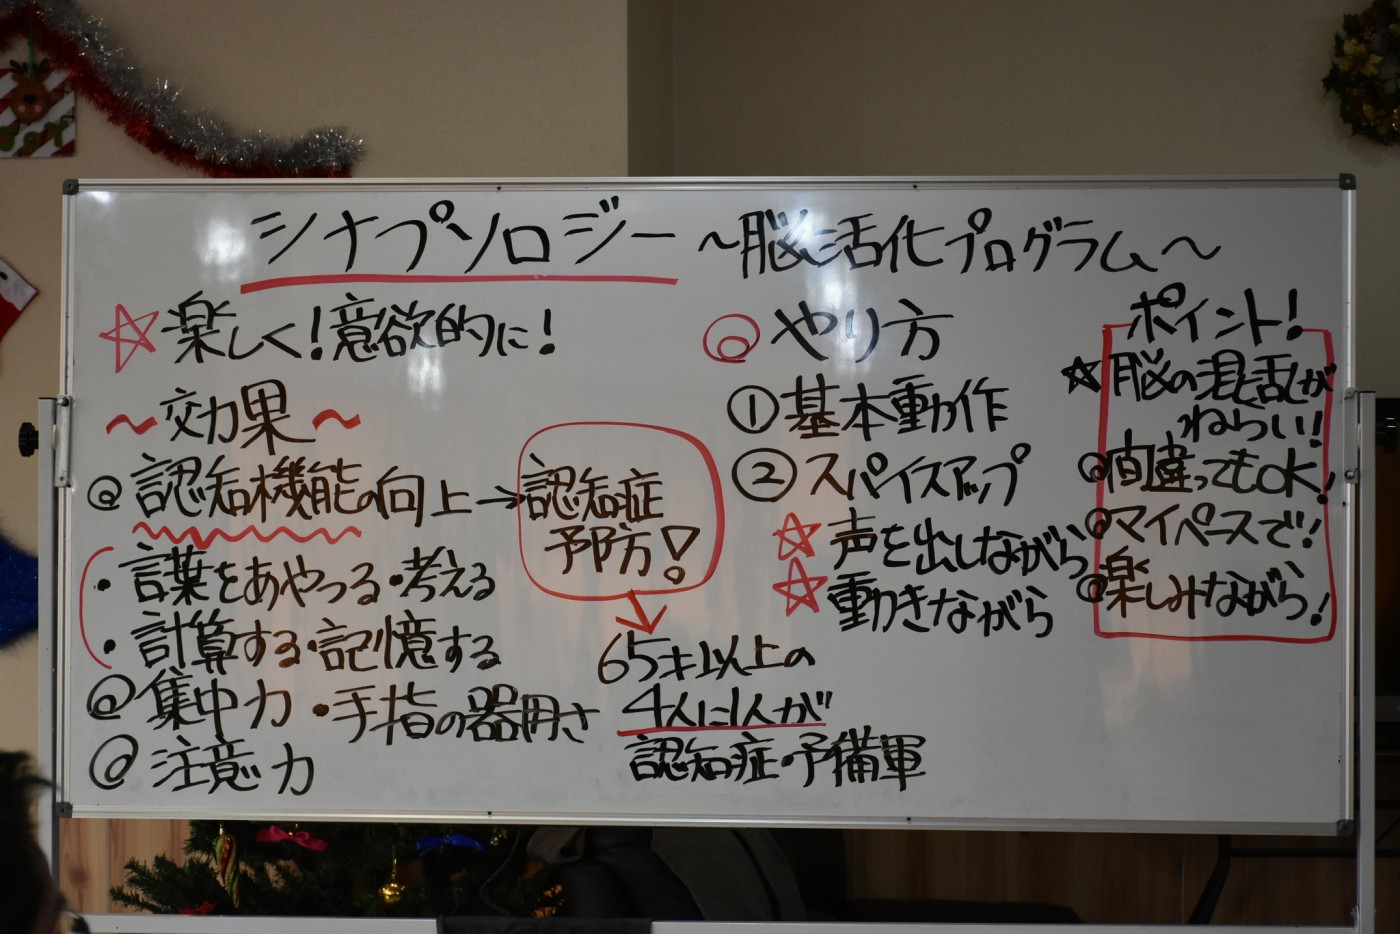 シナプソロジー ～脳活性化プログラム～
☆楽しく！意欲的に！
～効果～
◎認知機能の向上→認知症
予防！
・言葉をあやつる・考える
・計算する・記憶する
◎集中力・手指の器用さ
◎注意力
65才以上の
4人に1人が
認知症・予備軍
◎やり方
①基本動作
②スパイスアップ
☆声を出しながら
☆動きながら
ポイント！
☆脳の混乱が
ねらい！
◎間違ってもOK！
◎マイペースで！
◎楽しみながら！